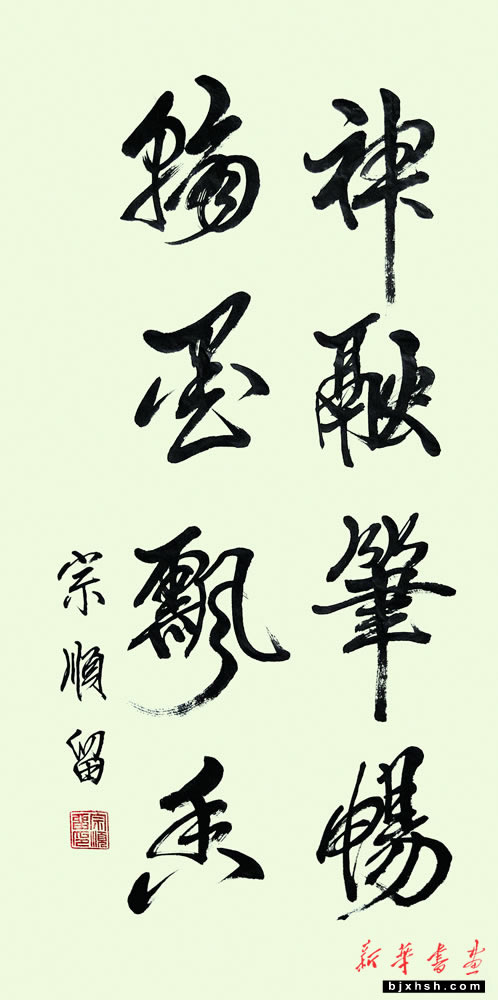 神融筆暢
翰墨飄香
宗順留
宗順留印
新華書畫
bjxhsh.com